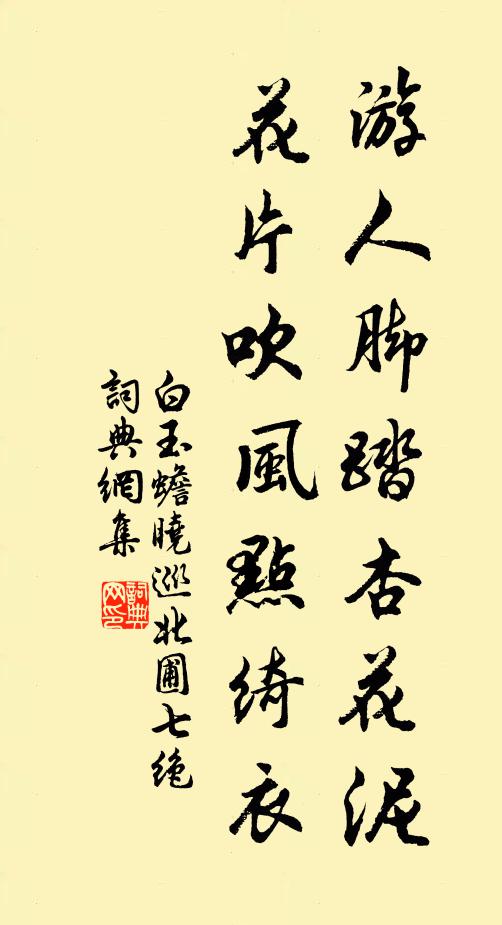 游人脚踏杏花泥
花片吹風點綺衣
白玉蟾曉巡北圃七絕
詞典網集
詞典
网印